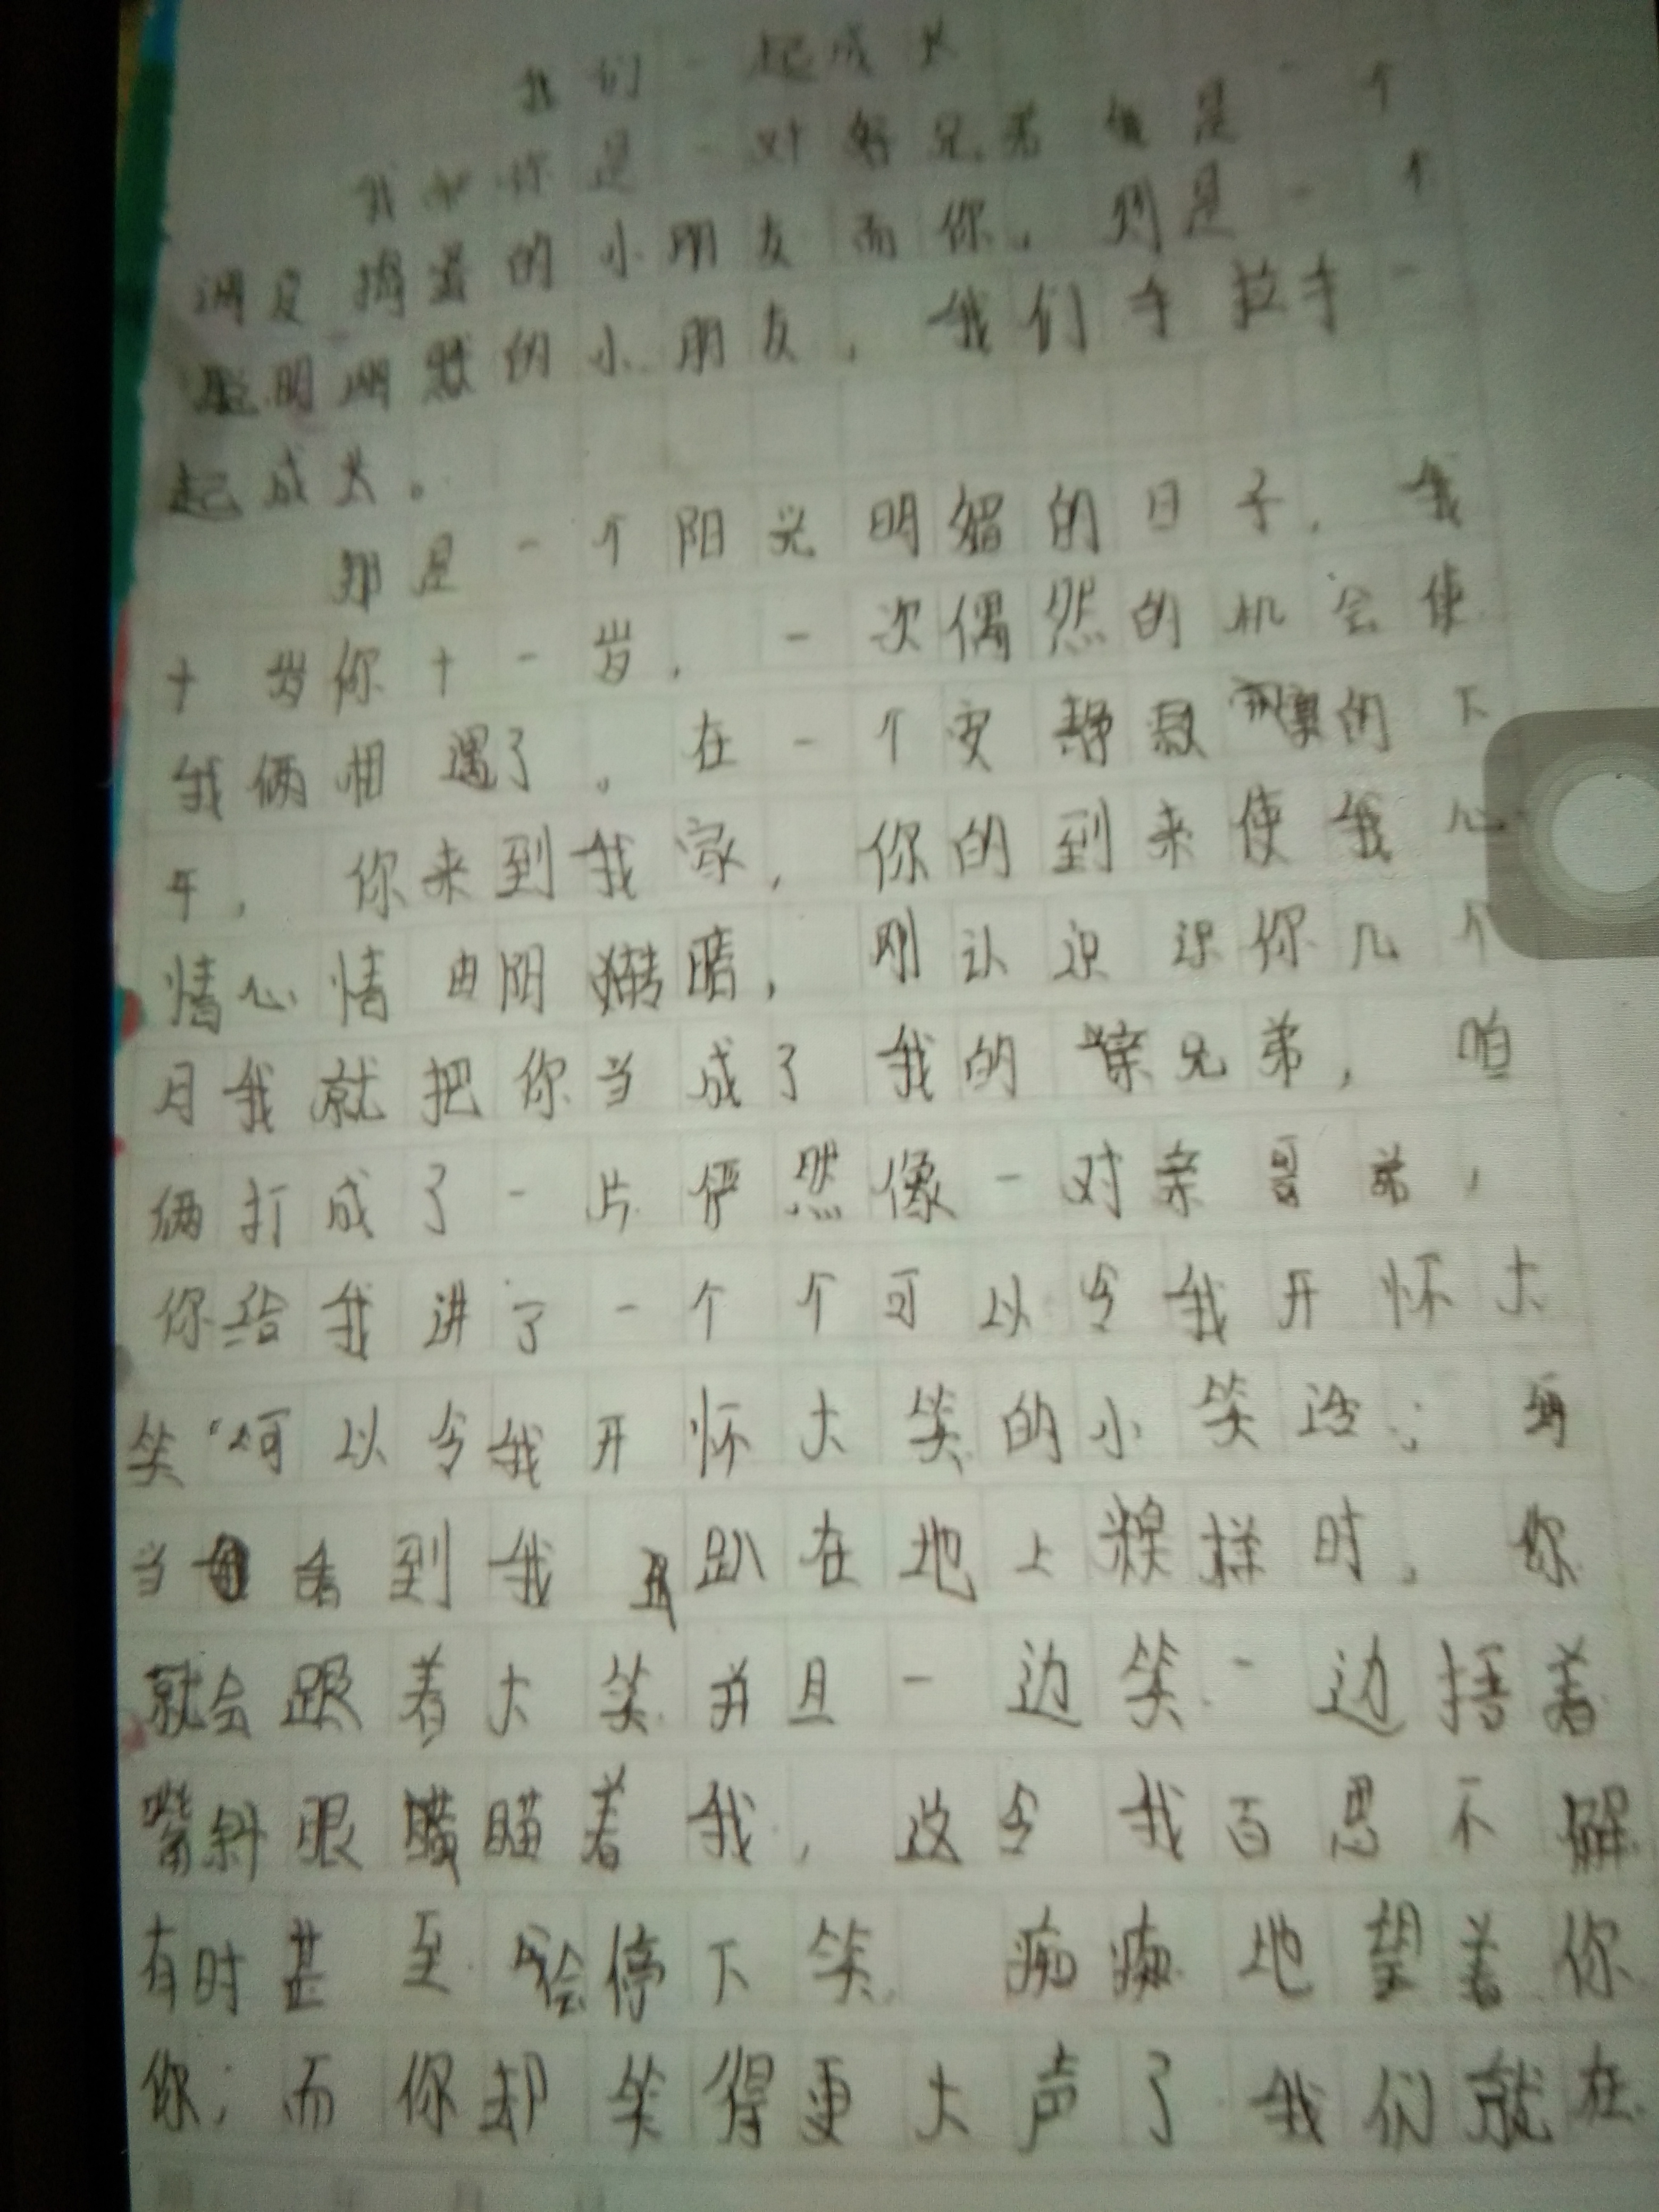 我们一起成长
我和你是一对好兄弟 是一个
调皮捣蛋的小朋友而你，则是一个
聪明幽默的小朋友，我们手拉手一
起成长。
那是一个阳光明媚的日子，我
十岁你十一岁，一次偶然的机会使
我俩相遇了。在一个安静寂寞的下
午，你来到我家，你的到来使我心
情心情由阴转晴，刚认识识你几个
月我就把你当成了我的亲兄弟，咱
俩打成了一片俨然像一对亲哥弟，
你给我讲了一个个可以令我开怀大
笑可以令我开怀大笑的小笑话；每
当看到我趴在地上模样时，你
就会跟着大笑并且一边笑一边捂着
嘴斜眼瞄着我，这令我百思不解
有时甚至会停下笑 痴痴地望着你
你；而你却笑得更大声了我们就在